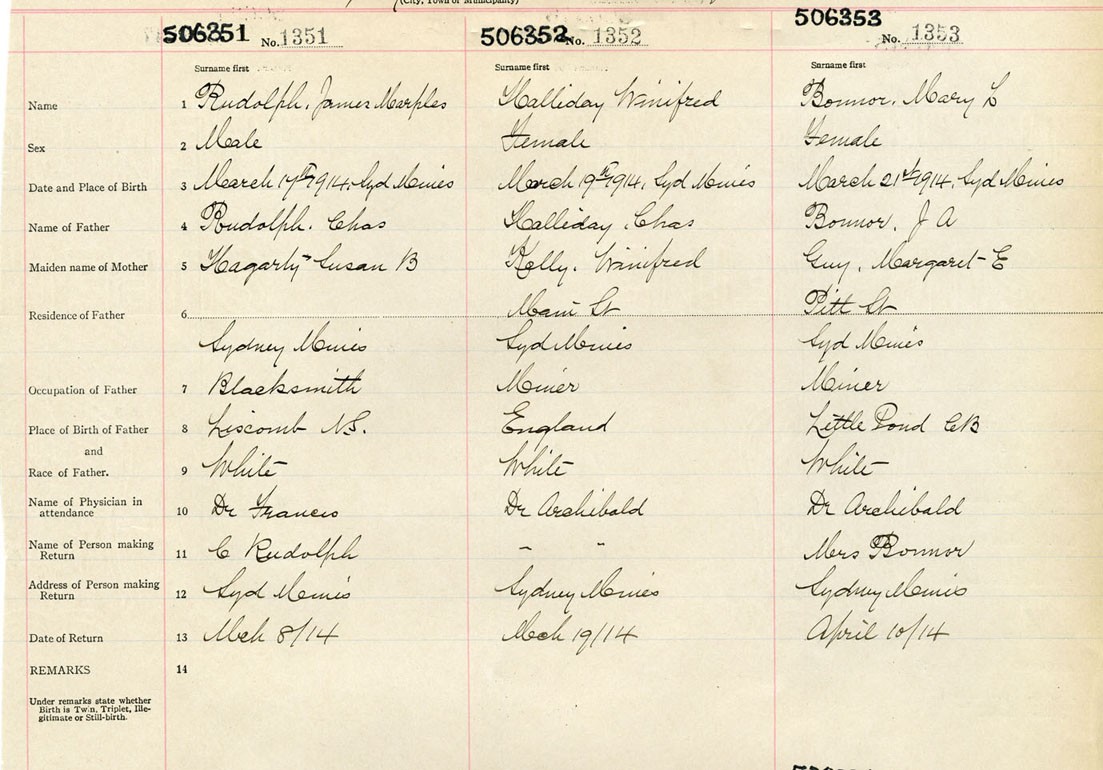 (City, Town or Municipality)
506351 No. 1351 506352 No. 1352 506353 No. 1353
Surname first Surname first Surname first
Name 1 Rudolph, James Marples Halliday Winifred Bonnor, Mary L
Sex 2 Male Female Female
Date and Place of Birth 3 March 17th 1914, Syd Mines March 19th 1914, Syd Mines March 21st 1914, Syd Mines
Name of Father 4 Rudolph, Chas Halliday, Chas Bonnor, J A
Maiden name of Mother 5 Hagarty Susan B Kelly, Winifred Guy, Margaret E
Residence of Father 6 Main St Pitt St
Sydney Mines Syd Mines Syd Mines
Occupation of Father 7 Blacksmith Miner Miner
Place of Birth of Father 8 Liscomb N.S. England Little Pond CB
and
Race of Father. 9 White White White
Name of Physician in
attendance 10 Dr Francis Dr Archibald Dr Archibald
Name of Person making
Return 11 C Rudolph - " Mrs Bonnor
Address of Person making
Return 12 Syd Mines Sydney Mines Sydney Mines
Date of Return 13 Mch 8/14 Mch 19/14 April 10/14
REMARKS 14
Under remarks state whether
Birth is Twin, Triplet, Ille-
gitimate or Still-birth.